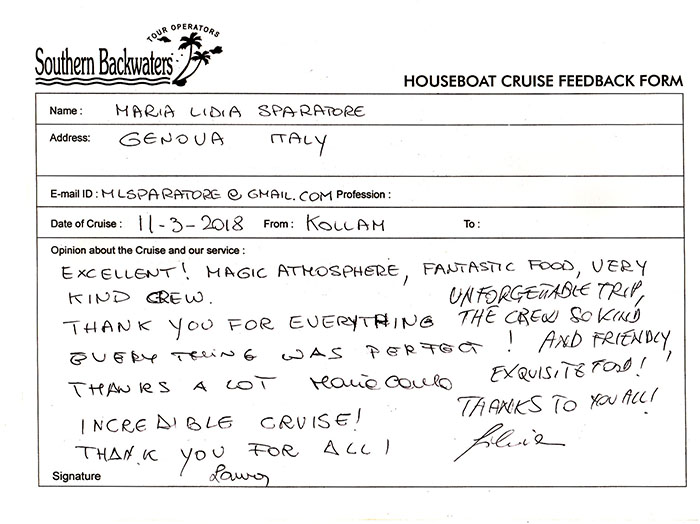 TOUR OPERATORS
Southern Backwaters
HOUSEBOAT CRUISE FEEDBACK FORM
Name : MARIA LIDIA SPARATORE
Address: GENOVA ITALY
E-mail ID : MLSPARATORE @ GMAIL.COM Profession :
Date of Cruise : 11-3-2018 From : KOLLAM To :
Opinion about the Cruise and our service :
EXCELLENT! MAGIC ATMOSPHERE, FANTASTIC FOOD, VERY
KIND CREW.
THANK YOU FOR EVERYTHING
EVERY THING WAS PERFECT !
THANKS A LOT
INCREDIBLE CRUISE!
THANK YOU FOR ALL!
Laura
UNFORGETTABLE TRIP,
THE CREW SO KIND
AND FRIENDLY,
EXQUISITE FOOD!
THANKS TO YOU ALL!
Silvia
Signature